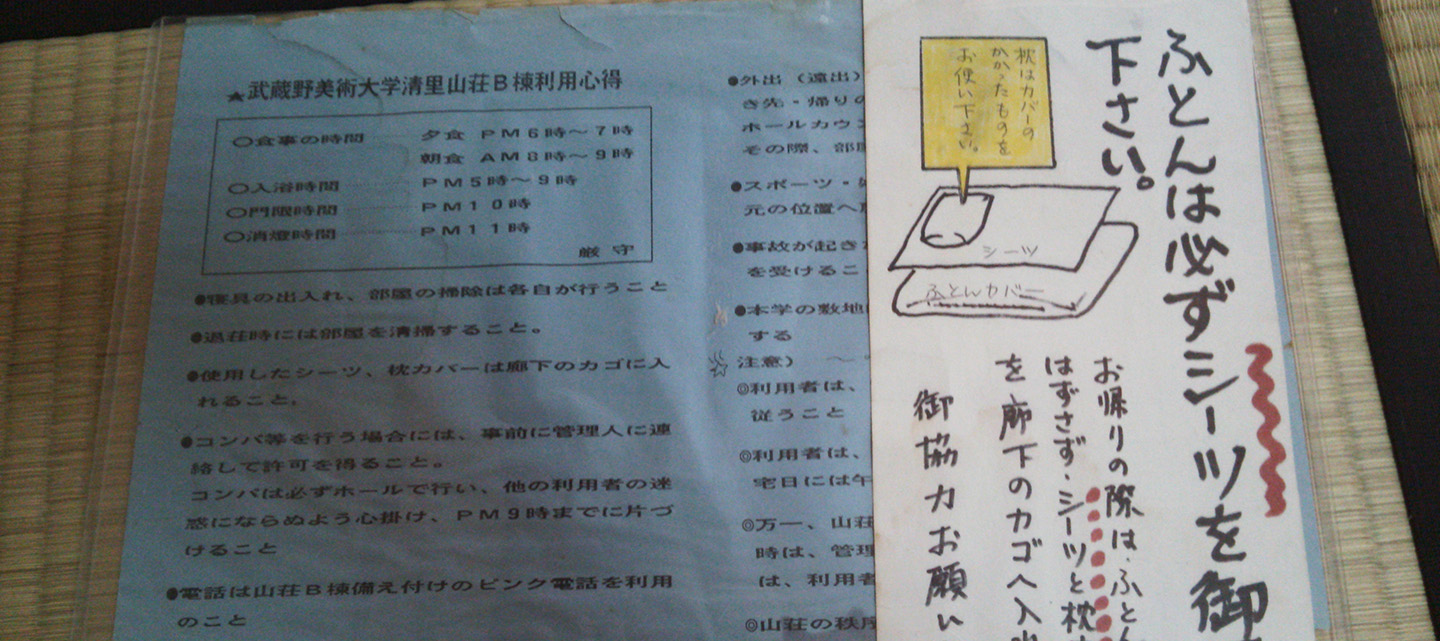 ★武蔵野美術大学清里山荘B棟利用心得
○食事の時間 夕食 PM6時〜7時
朝食 AM8時〜9時
○入浴時間 PM5時〜9時
○門限時間 PM10時
○消燈時間 PM11時
厳守
●寝具の出入れ、部屋の掃除は各自が行うこと
●退荘時には部屋を清掃すること。
●使用したシーツ、枕カバーは廊下のカゴに入
れること。
●コンパ等を行う場合には、事前に管理人に連
絡して許可を得ること。
コンパは必ずホールで行い、他の利用者の迷
惑にならぬよう心掛け、PM9時までに片づ
けること
●電話は山荘B棟備え付けのピンク電話を利用
のこと
●外出(遠出)
き先・帰りの
ホールカウン
その際、部屋
●スポーツ・
元の位置へ
●事故が起き
を受けるこ
●本学の敷地
する
注意)
◎利用者は、
従うこと
◎利用者は、
宅日には午
◎万一、山荘
時は、管理
は、利用者
◎山荘の秩序
ふとんは必ずシーツを御
下さい。
枕はカバーの
かかったものを
お使い下さい。
シーツ
ふとんカバー
お帰りの際は、ふとん
はずさず・シーツと枕
を廊下のカゴへ入
御協力お願い